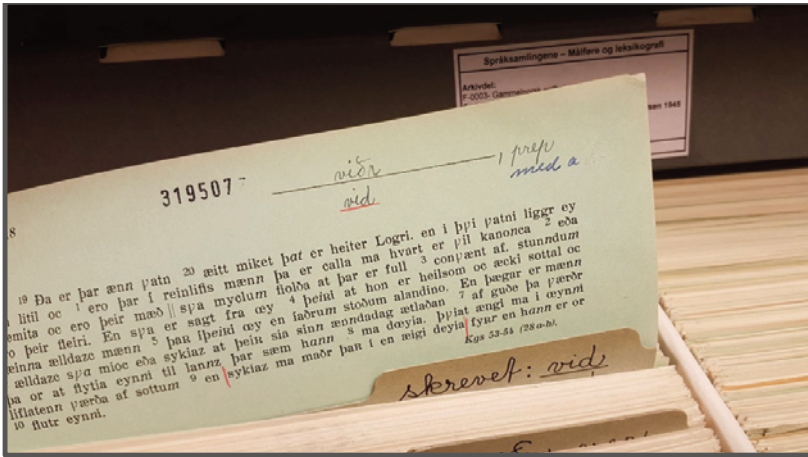 Språksamlingene – Målføre og leksikografi
Arkivdel:
F-0003- Gammelnorsk
sen 1948
319507
viðr
, prep
vid
med a
8
19 Ða er þar ænn ƿatn 20 æitt miket þat er heiter Logri. en i þƿi ƿatni liggr ey
litil oc 1 ero þar i reinlifis mænn þa er calla ma hvart er ƿil kanonca 2 eða
emita oc ero þeir mæð || sƿa myclum fiolða at þar er full 3 conƿænt af. stunndum
o þeir fleiri. En sƿa er sagt fra œy 4 þeiri at hon er heilsom oc æcki sottal oc
einna ælldazc mænn 5 þar i þeiri œy en i aðrum stoðum alandino. En þægar er mænn
ælldazc sƿa mioc eða sykiaz at þeir sia sinn ænndadag ætlaðan 7 af guðe þa ƿærðr
þa or at flytia eynni til lannz þar sæm hann 8 ma dœyia. þƿiat ængi ma i œynni
liflatenn ƿærða af sottum 9 en sykiaz ma maðr þar i en æigi deyia fyrr en hann er or
10 flutr eynni.
Kgs 53-54 (28 a-b).
skrevet: vid